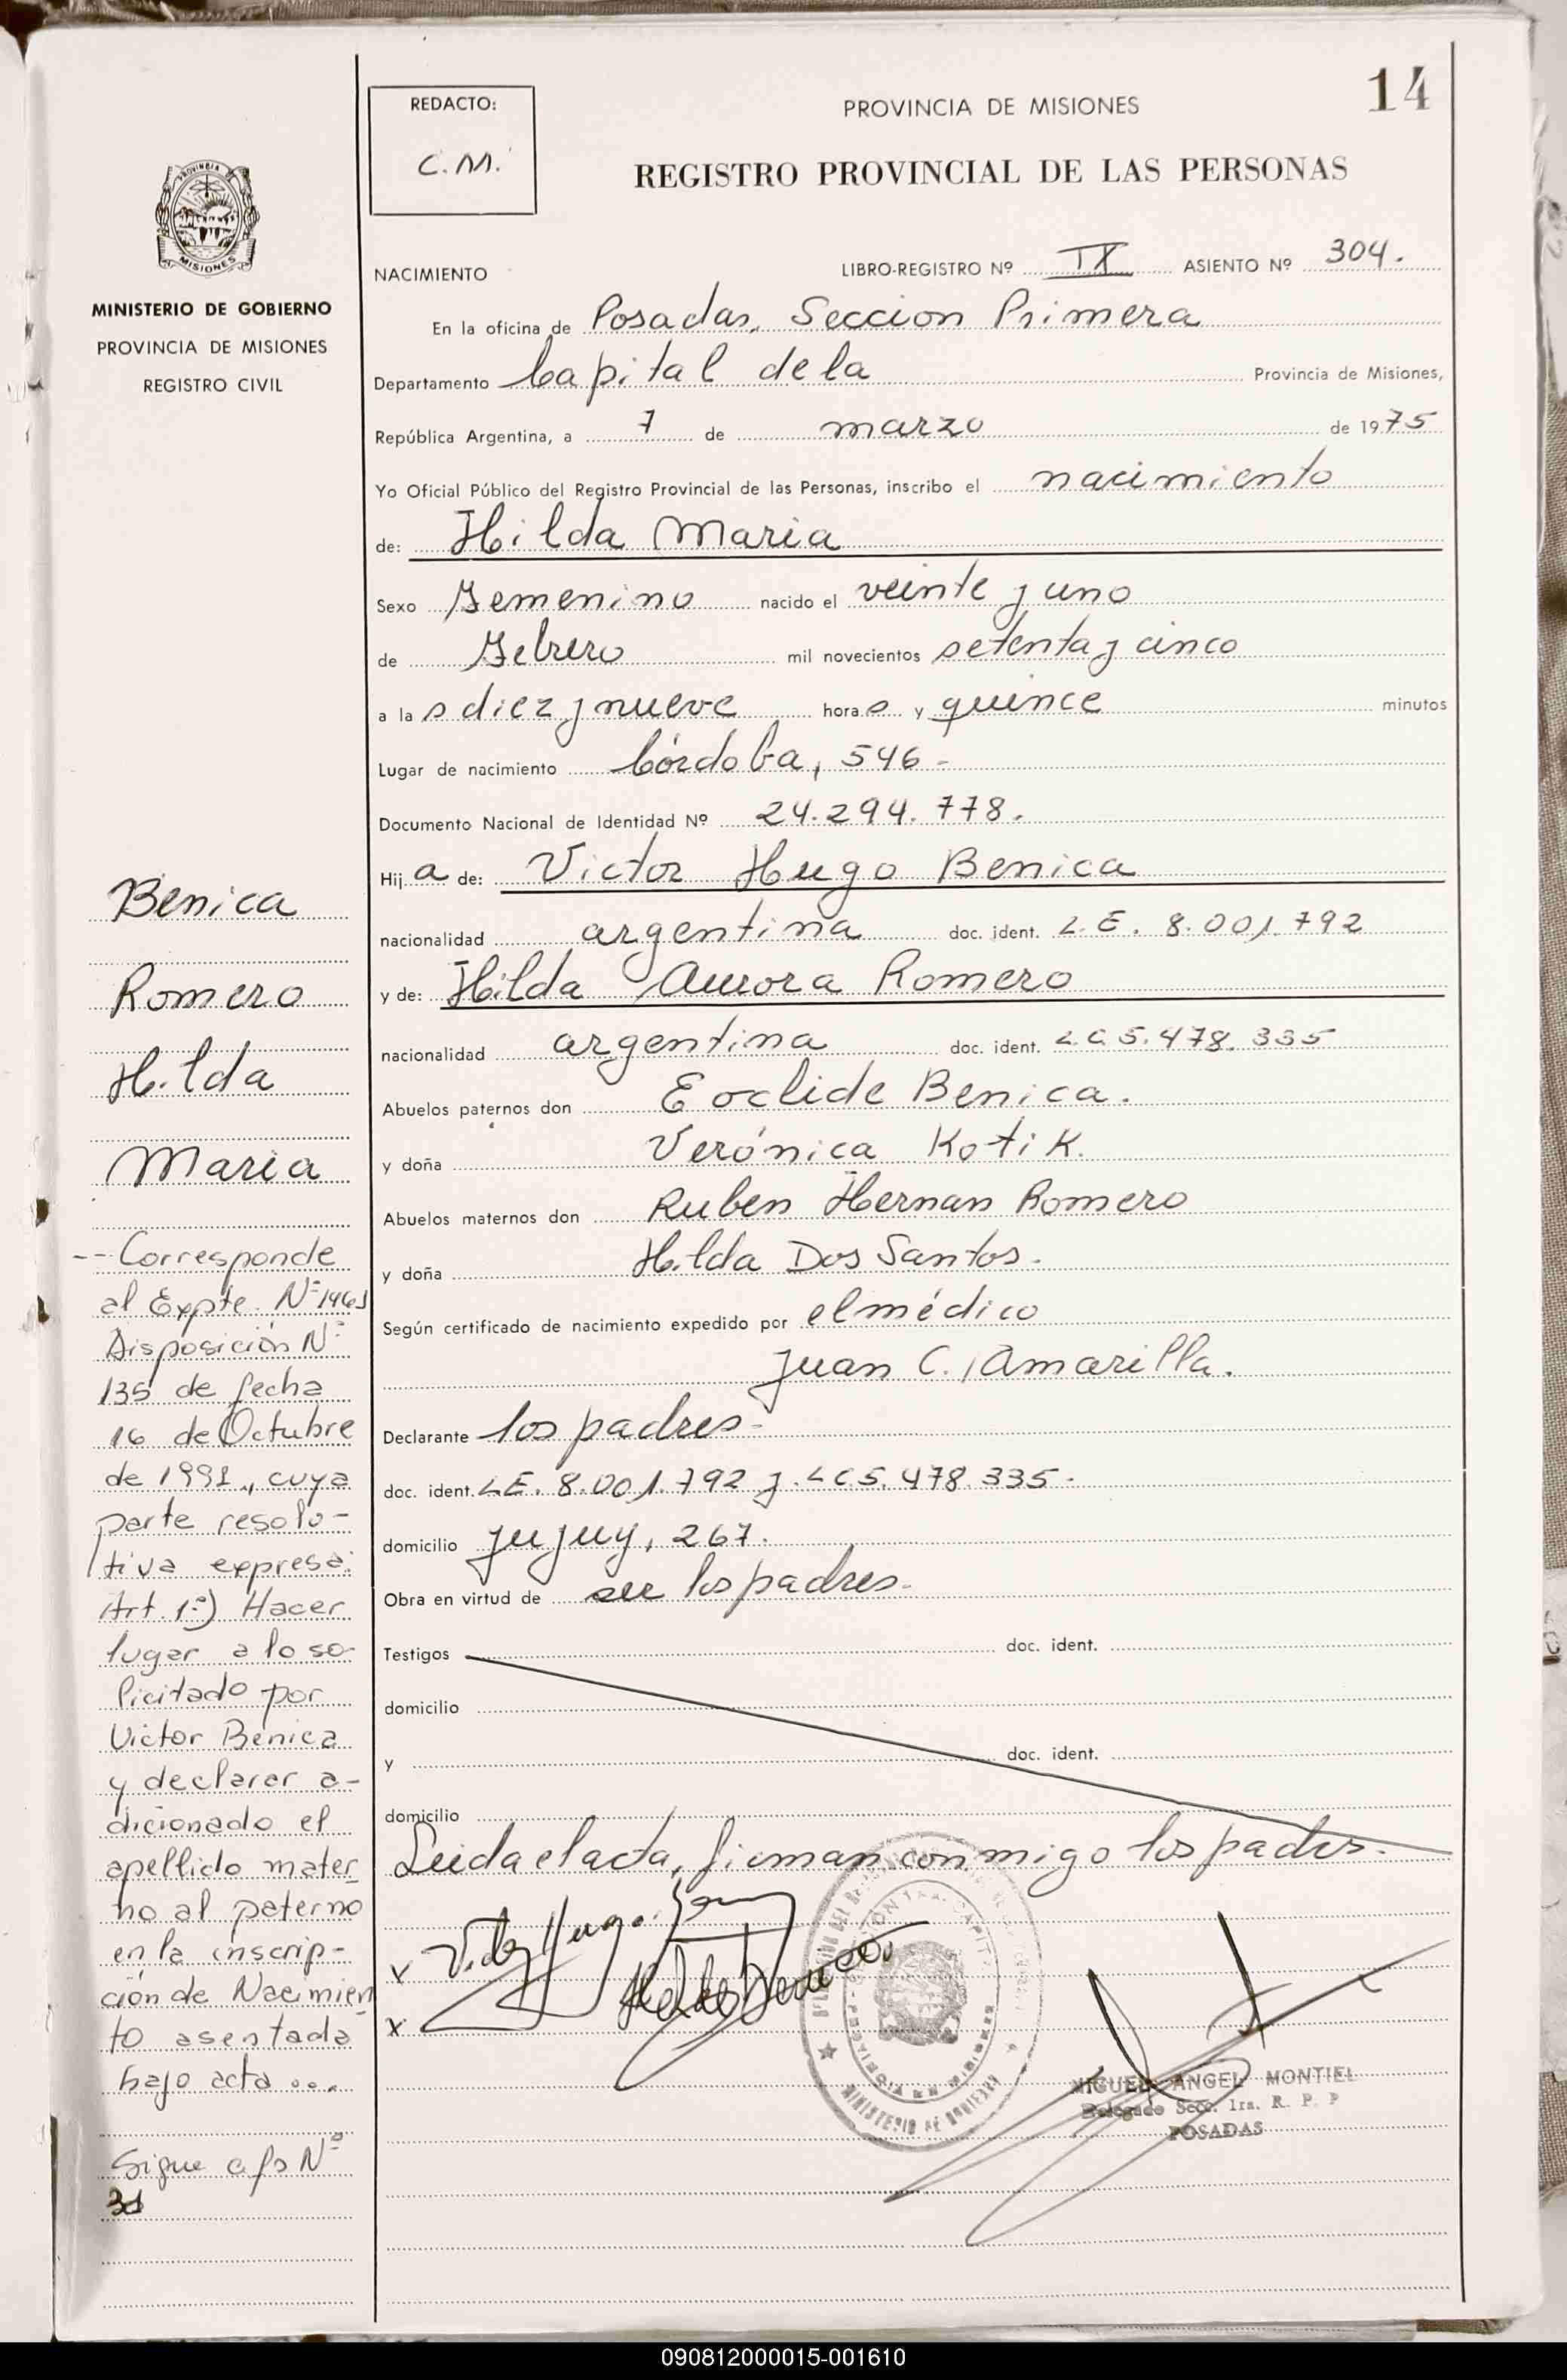 14
REDACTO:
C.M.
PROVINCIA DE MISIONES
REGISTRO PROVINCIAL DE LAS PERSONAS
PROVINCIA DE
MISIONES
MINISTERIO DE GOBIERNO
PROVINCIA DE MISIONES
REGISTRO CIVIL
NACIMIENTO LIBRO-REGISTRO Nº IX ASIENTO Nº 304.
En la oficina de Posadas, Seccion Primera
Departamento Capital de la Provincia de Misiones,
República Argentina, a 7 de marzo de 1975
Yo Oficial Público del Registro Provincial de las Personas, inscribo el nacimiento
de: Hilda Maria
Sexo Femenino nacido el veinte y uno
de Febrero mil novecientos setenta y cinco
a la s diez y nueve hora s y quince minutos
Lugar de nacimiento Córdoba, 546-
Documento Nacional de Identidad Nº 24.294.778.
Hij a de: Victor Hugo Benica
nacionalidad argentina doc. ident. L.E. 8.001.792
y de: Hilda Aurora Romero
nacionalidad argentina doc. ident. L.C. 5.478.335
Abuelos paternos don Eoclide Benica.
y doña Verónica Kotik.
Abuelos maternos don Ruben Hernan Romero
y doña Hilda Dos Santos.
Según certificado de nacimiento expedido por el médico
Juan C. Amarilla.
Declarante los padres-
doc. ident. LE. 8.001.792 y LC 5.478.335-
domicilio Jujuy, 267.
Obra en virtud de ser los padres-
Testigos doc. ident.
domicilio
y doc. ident.
domicilio
Leida el acta, firman conmigo los padres.
x Victor Hugo
x
MIGUEL ANGEL MONTIEL
Delegado Secc. 1ra. R. P. P
POSADAS
Benica
Romero
Hilda
Maria
-- Corresponde
al Expte. Nº
Disposición Nº
135 de fecha
16 de Octubre
de 1991, cuya
parte resolu-
tiva expresa:
Art. 1º) Hacer
lugar a lo so-
licitado por
Victor Benica
y declarar a-
dicionado el
apellido mater
no al paterno
en la inscrip-
ción de Nacimien
to asentada
bajo acta ...
Sigue a fs Nº
31
090812000015-001610